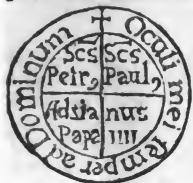 ✝ Oculi mei semper ad Dominum
Scs Scs
Petr, Paul,
Adria nus
Papa IIII